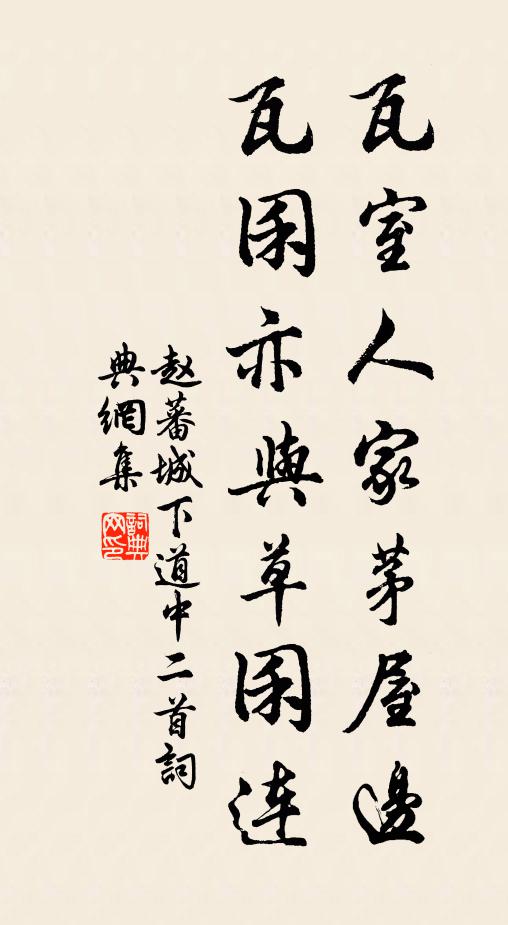 瓦室人家茅屋邊
瓦囷亦與草囷連
赵蕃城下道中二首詞
典網集
詞典网印